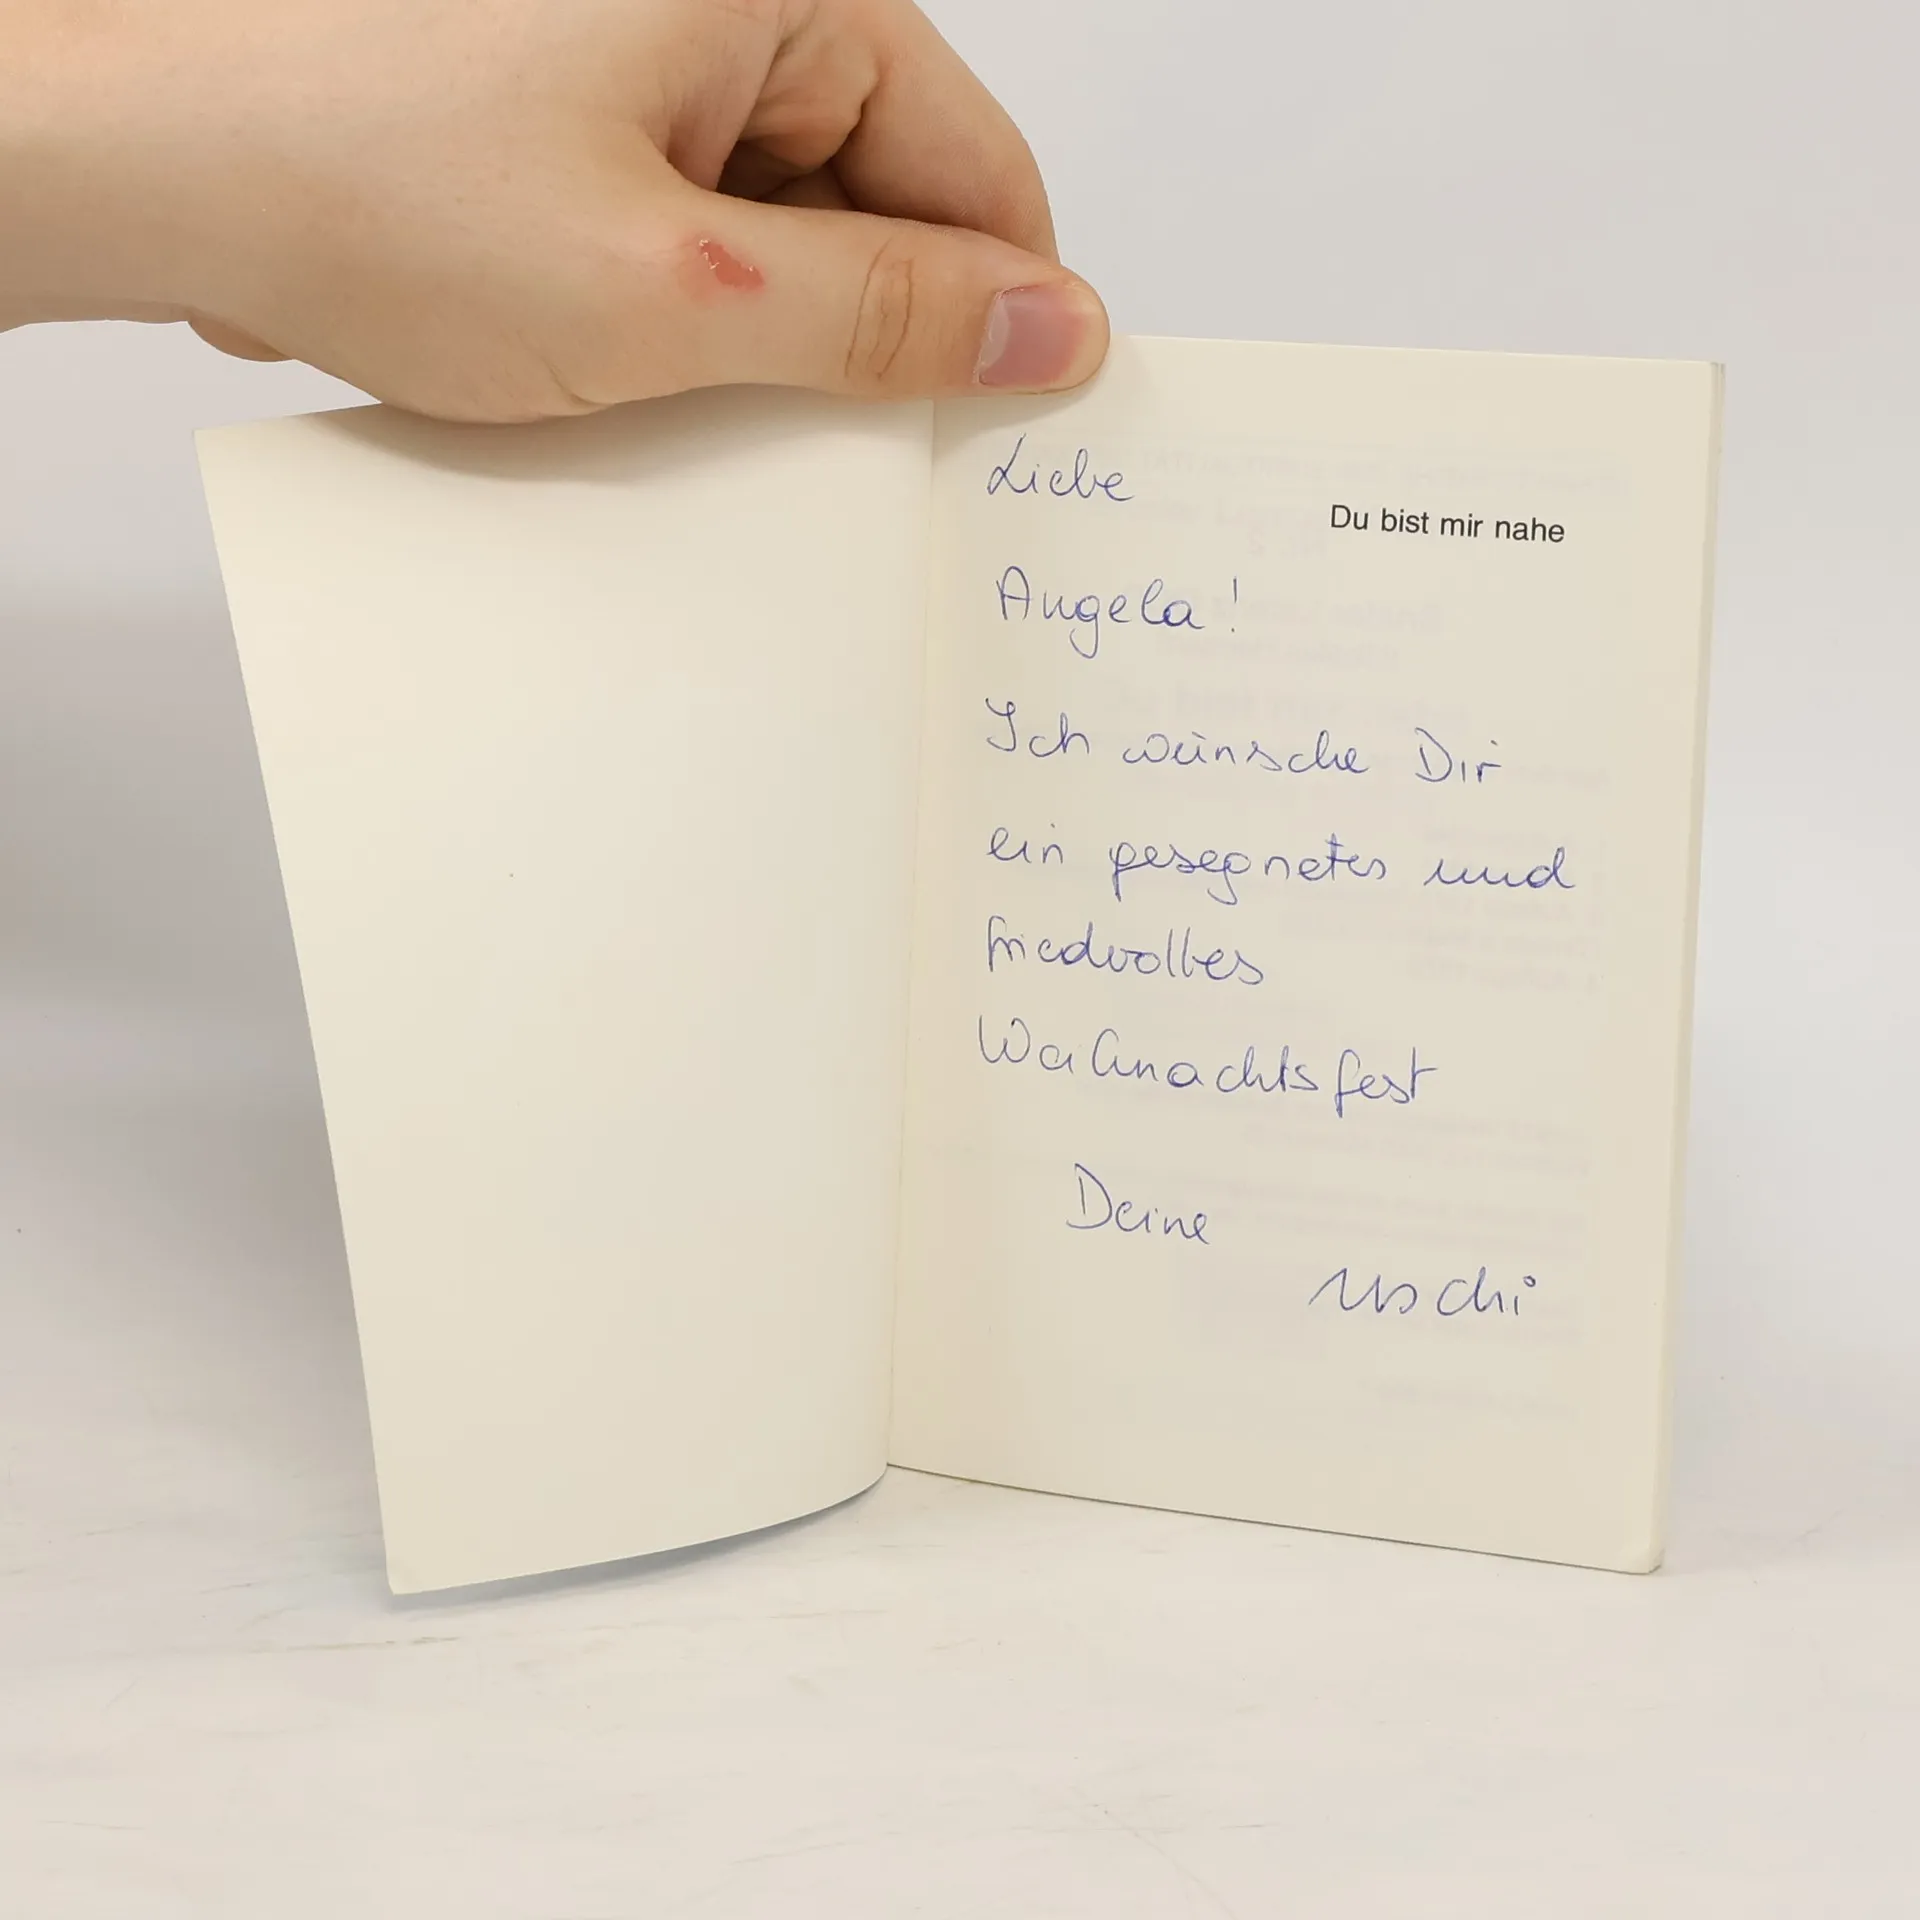 Liebe
Du bist mir nahe
Angela!
Ich wünsche Dir
ein gesegnetes und
friedvolles
Weihnachtsfest
Deine
Uschi